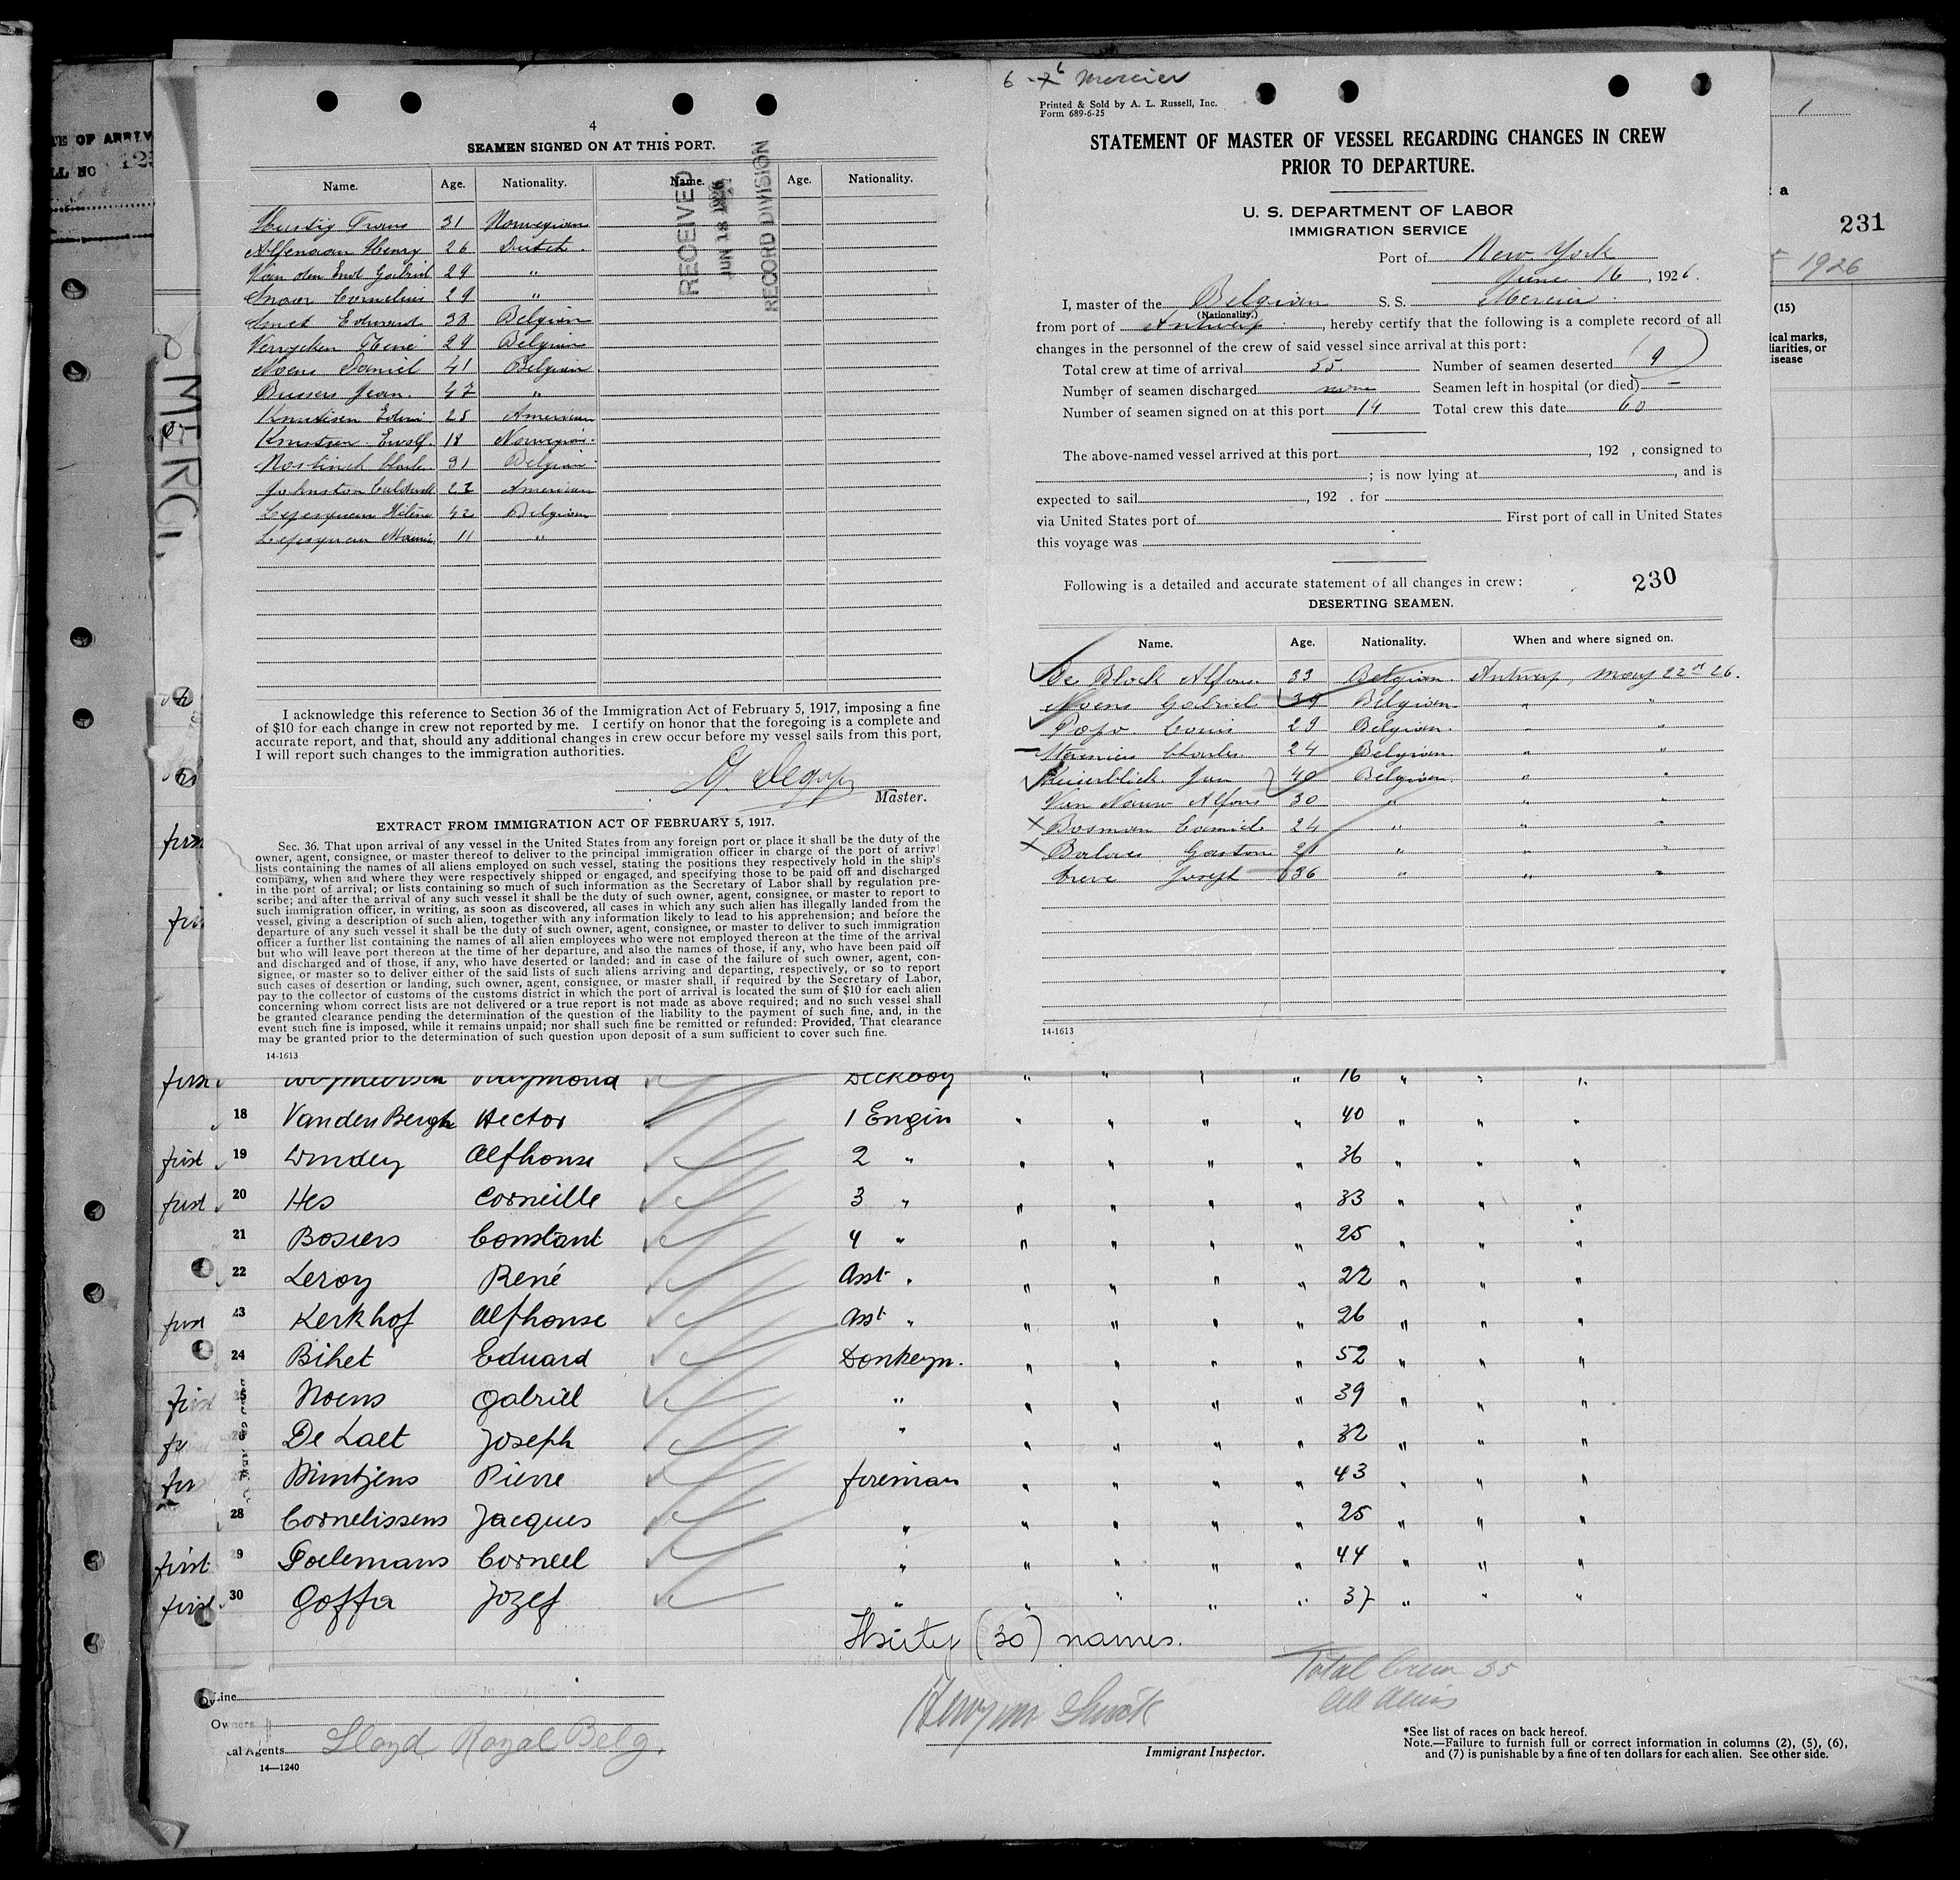 4
SEAMEN SIGNED ON AT THIS PORT.
Name. Age. Nationality. Name. Age. Nationality.
RECEIVED
JUN 18 1926
RECORD DIVISION
31 Norwegian
Henry 26 Dutch
Van den 29 "
Cornelius 29 "
Smet Edward 38 Belgian
René 29 Belgian
Noens Daniel 41 Belgian
Bussers Jean. 47 "
Knudsen Edwin 28 American
18 Norwegian
31 Belgian
Johnston 22 American
42 Belgian
11 "
I acknowledge this reference to Section 36 of the Immigration Act of February 5, 1917, imposing a fine
of $10 for each change in crew not reported by me. I certify on honor that the foregoing is a complete and
accurate report, and that, should any additional changes in crew occur before my vessel sails from this port,
I will report such changes to the immigration authorities.
Master.
EXTRACT FROM IMMIGRATION ACT OF FEBRUARY 5, 1917.
Sec. 36. That upon arrival of any vessel in the United States from any foreign port or place it shall be the duty of the
owner, agent, consignee, or master thereof to deliver to the principal immigration officer in charge of the port of arrival
lists containing the names of all aliens employed on such vessel, stating the positions they respectively hold in the ship's
company, when and where they were respectively shipped or engaged, and specifying those to be paid off and discharged
in the port of arrival; or lists containing so much of such information as the Secretary of Labor shall by regulation pre-
scribe; and after the arrival of any such vessel it shall be the duty of such owner, agent, consignee, or master to report to
such immigration officer, in writing, as soon as discovered, all cases in which any such alien has illegally landed from the
vessel, giving a description of such alien, together with any information likely to lead to his apprehension; and before the
departure of any such vessel it shall be the duty of such owner, agent, consignee, or master to deliver to such immigration
officer a further list containing the names of all alien employees who were not employed thereon at the time of the arrival
but who will leave port thereon at the time of her departure, and also the names of those, if any, who have been paid off
and discharged and of those, if any, who have deserted or landed; and in case of the failure of such owner, agent, con-
signee, or master so to deliver either of the said lists of such aliens arriving and departing, respectively, or so to report
such cases of desertion or landing, such owner, agent, consignee, or master shall, if required by the Secretary of Labor,
pay to the collector of customs of the customs district in which the port of arrival is located the sum of $10 for each alien
concerning whom correct lists are not delivered or a true report is not made as above required; and no such vessel shall
be granted clearance pending the determination of the question of the liability to the payment of such fine, and, in the
event such fine is imposed, while it remains unpaid; nor shall such fine be remitted or refunded: Provided, That clearance
may be granted prior to the determination of such question upon deposit of a sum sufficient to cover such fine.
14-1613
Mercier
Printed & Sold by A. L. Russell, Inc.
Form 689-6-25
STATEMENT OF MASTER OF VESSEL REGARDING CHANGES IN CREW
PRIOR TO DEPARTURE.
U. S. DEPARTMENT OF LABOR
IMMIGRATION SERVICE
Port of New York
June 16, 1926.
I, master of the Belgian S. S. Mercier
(Nationality.)
from port of Antwerp, hereby certify that the following is a complete record of all
changes in the personnel of the crew of said vessel since arrival at this port:
Total crew at time of arrival 55 Number of seamen deserted 9
Number of seamen discharged none Seamen left in hospital (or died) —
Number of seamen signed on at this port 14 Total crew this date 60
The above-named vessel arrived at this port , 192 , consigned to
; is now lying at , and is
expected to sail , 192 . for
via United States port of First port of call in United States
this voyage was
Following is a detailed and accurate statement of all changes in crew:
230
DESERTING SEAMEN.
Name. Age. Nationality. When and where signed on.
De Block Alfons. 33 Belgian. Antwerp, May 22nd 26.
Noens Gabriel 39 Belgian " "
Popo. Louis 29 Belgian. " "
Charles 24 Belgian " "
Jan 40 Belgian. " "
Van Alfons 30 " " "
Bosman Camiel 24 " " "
Gaston " " "
Joseph 36 " " "
14-1613
TE OF ARRIV
LL NO
MERCI
1
a
231
1926
(15)
ical marks,
liarities, or
isease
first Raymond Deckboy " " " " 16 " " "
18 Vanden Bergh Hector 1 Engin " " " " 40 " " "
first 19 Windey Alfhonse 2 " " " " " 36 " " "
first 20 Hes Corneille 3 " " " " " 33 " " "
21 Bosiers Constant 4 " " " " " 25 " " "
22 Leroy René Asst " " " " " 22 " " "
first 23 Kerkhof Alfhonse Asst " " " " " 26 " " "
24 Bihet Eduard Donkeyn. " " " " 52 " " "
first 25 Noens Gabriel " " " " " 39 " " "
De Laet Joseph " " " " " 32 " " "
Pierre fireman " " " " 43 " " "
28 Cornelissens Jacques " " " " " 25 " " "
first 29 Poelemans Corneel " " " " " 44 " " "
first 30 Goffa Jozef " " " " " 37 " " "
Thirty (30) names.
Total Crew 55
Line
Owners
cal Agents Lloyd Royal Belg.
14—1240
Immigrant Inspector.
*See list of races on back hereof.
Note.—Failure to furnish full or correct information in columns (2), (5), (6),
and (7) is punishable by a fine of ten dollars for each alien. See other side.